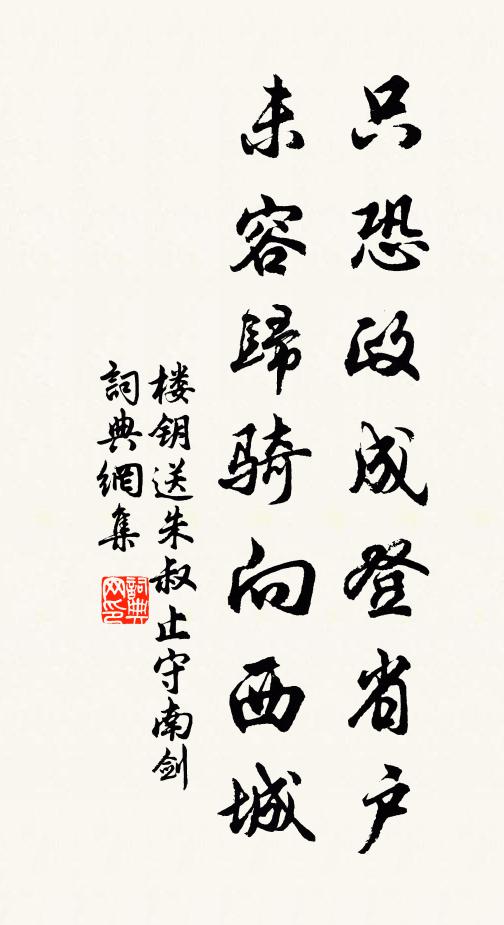 只恐政成登省户
未容歸骑向西城
楼钥送朱叔止守南剑
詞典網集
詞典網印